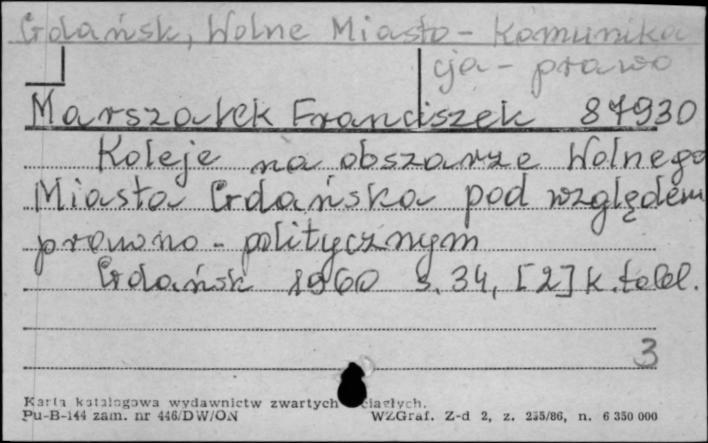 Gdańsk, Wolne Miasto - Komunika
cja - prawo
Marszałek Franciszek 87930
Koleje na obszarze Wolnego
Miasta Gdańska pod względem
prawno - politycznym
Gdańsk 1960 s. 34, [2] k. tabl.
3
Karta katalogowa wydawnictw zwartych ciągłych.
Pu-B-144 zam. nr 446/DW/ON WZGraf. Z-d 2, z. 235/86, n. 6 350 000